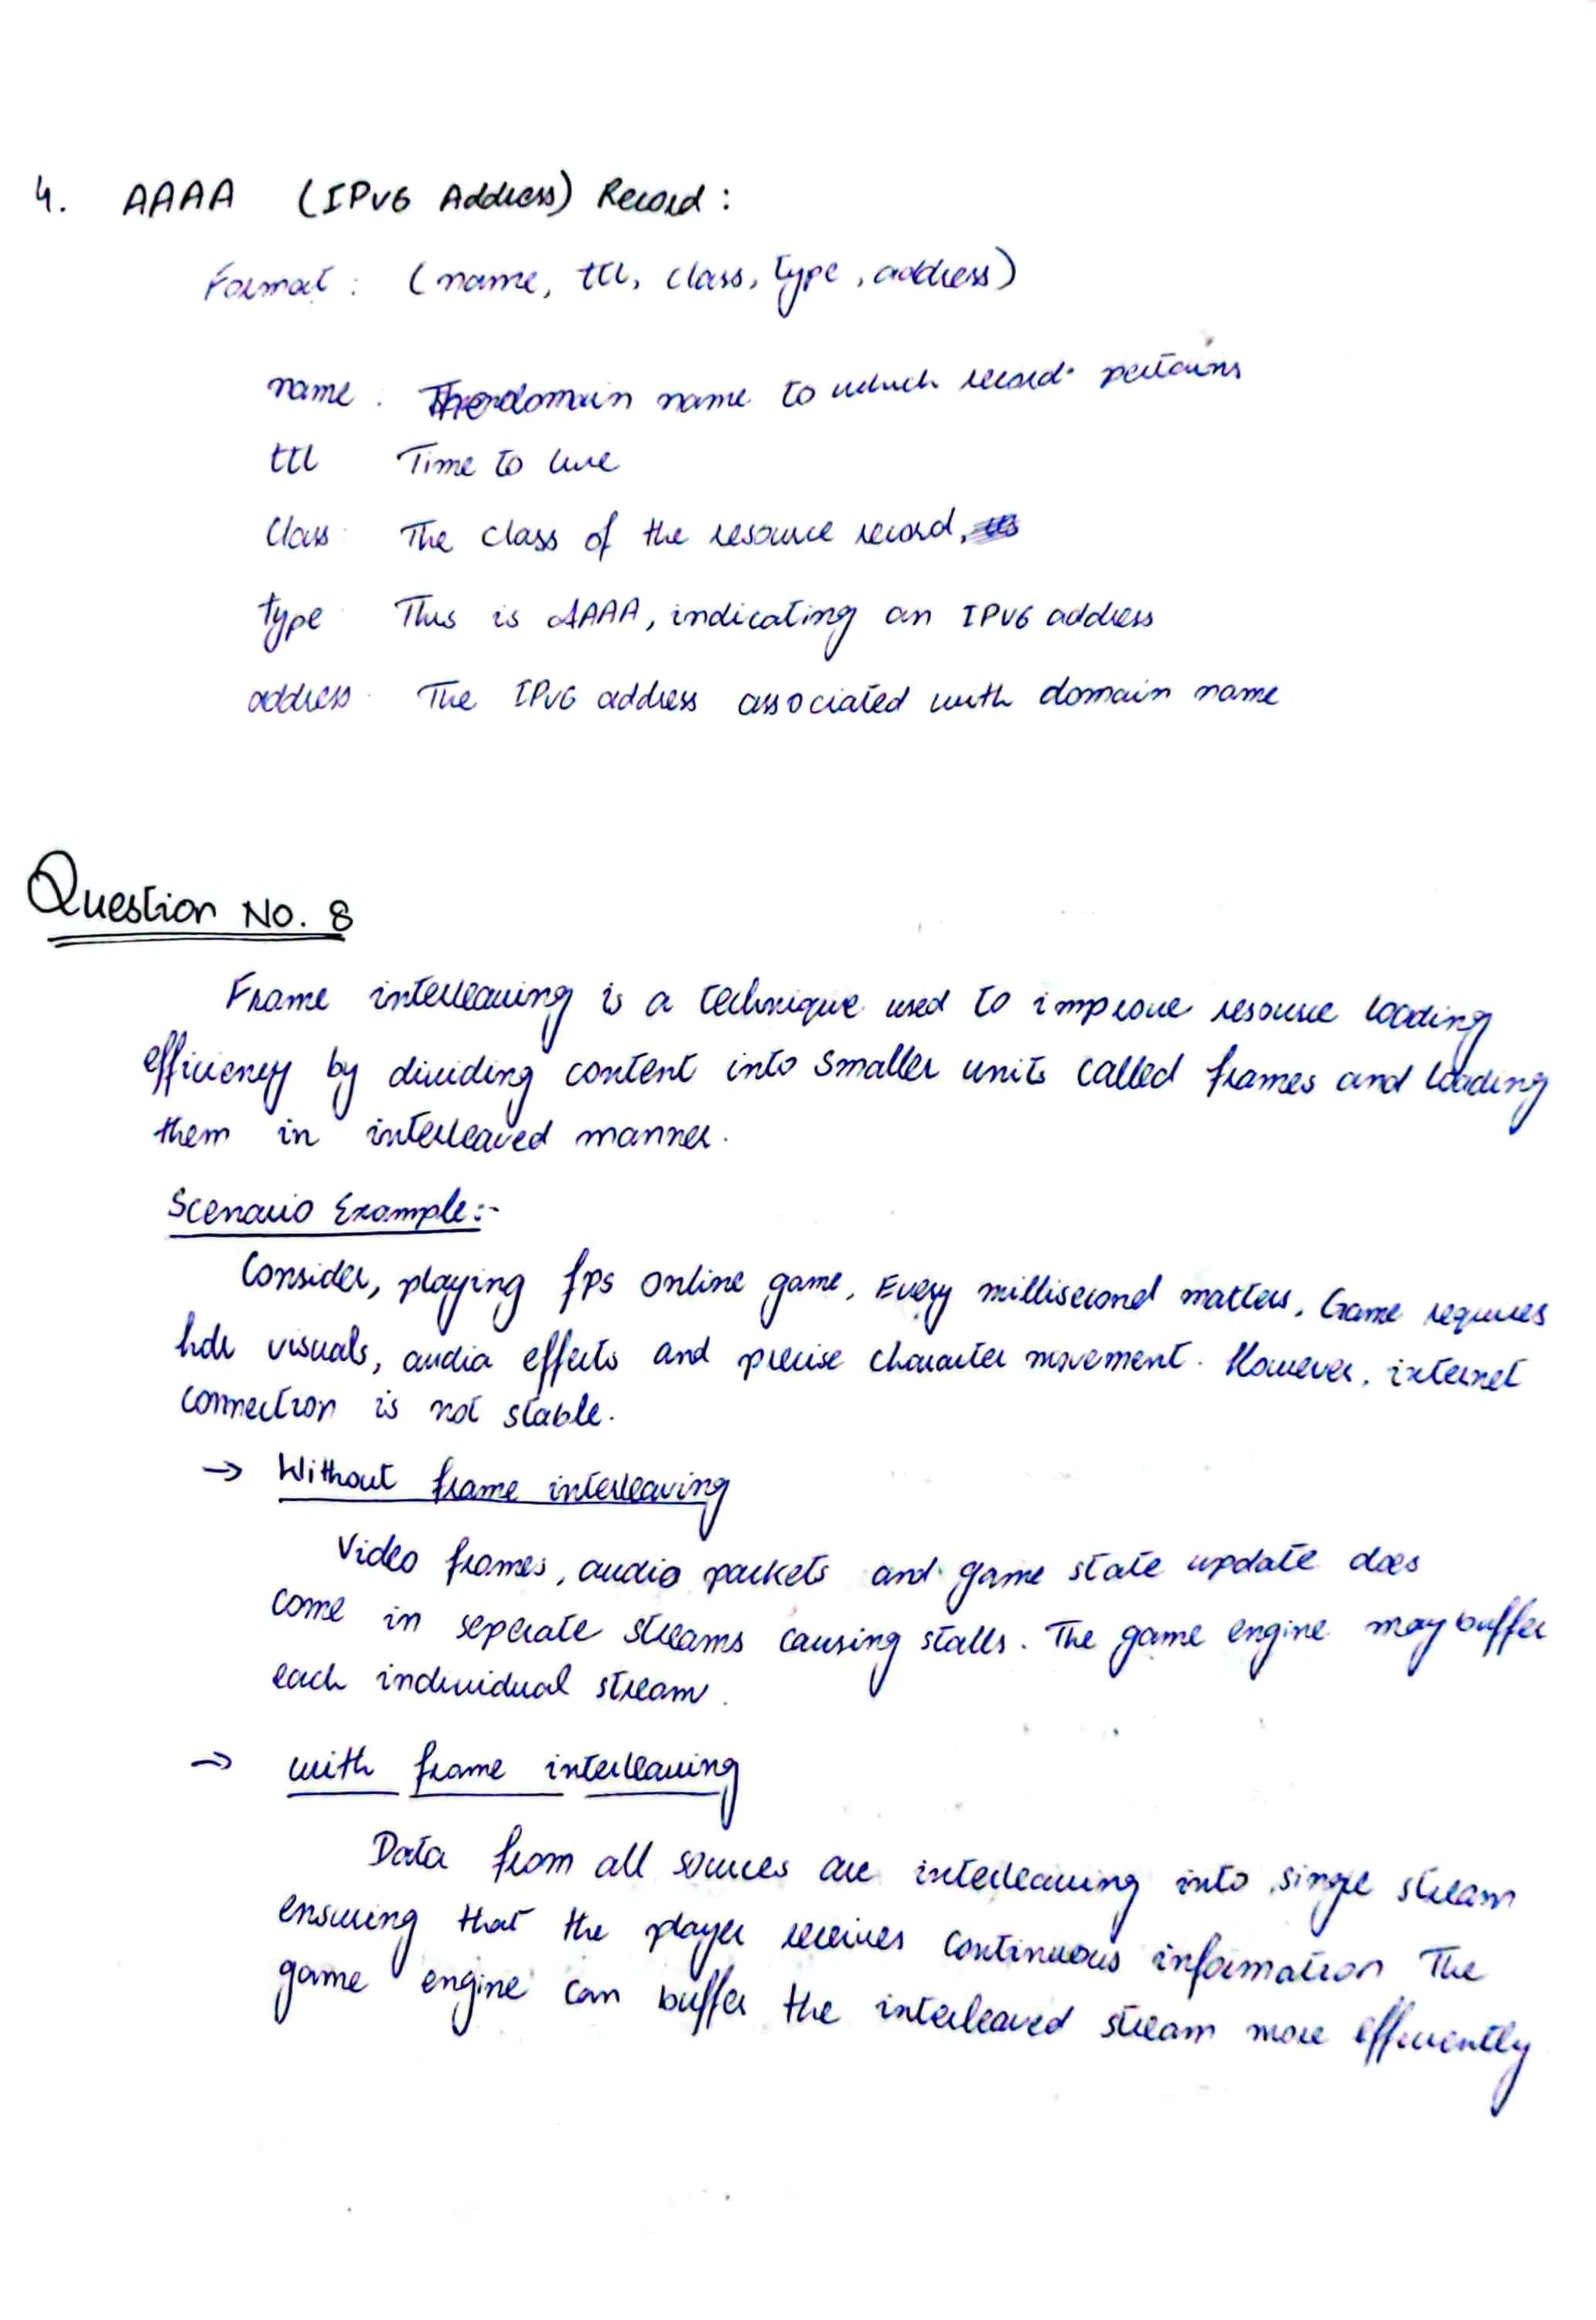 4. AAAA (IPv6 Address) Record :
Format : (name, ttl, class, type, address)
name . The domain name to which record pertains
ttl Time to live
Class The class of the resource record,
type This is AAAA, indicating an IPv6 address
address The IPv6 address associated with domain name
Question No. 8
Frame interleaving is a technique used to improve resource loading
efficiency by dividing content into smaller units called frames and loading
them in interleaved manner.
Scenario Example:-
Consider, playing fps online game, Every millisecond matters. Game requires
hdr visuals, audio effects and precise character movement. However, internet
connection is not stable.
→ Without frame interleaving
Video frames, audio packets and game state update does
come in seperate streams causing stalls. The game engine may buffer
each individual stream.
→ with frame interleaving
Data from all sources are interleaving into single stream
ensuring that the player receives continuous information The
game engine can buffer the interleaved stream more efficiently